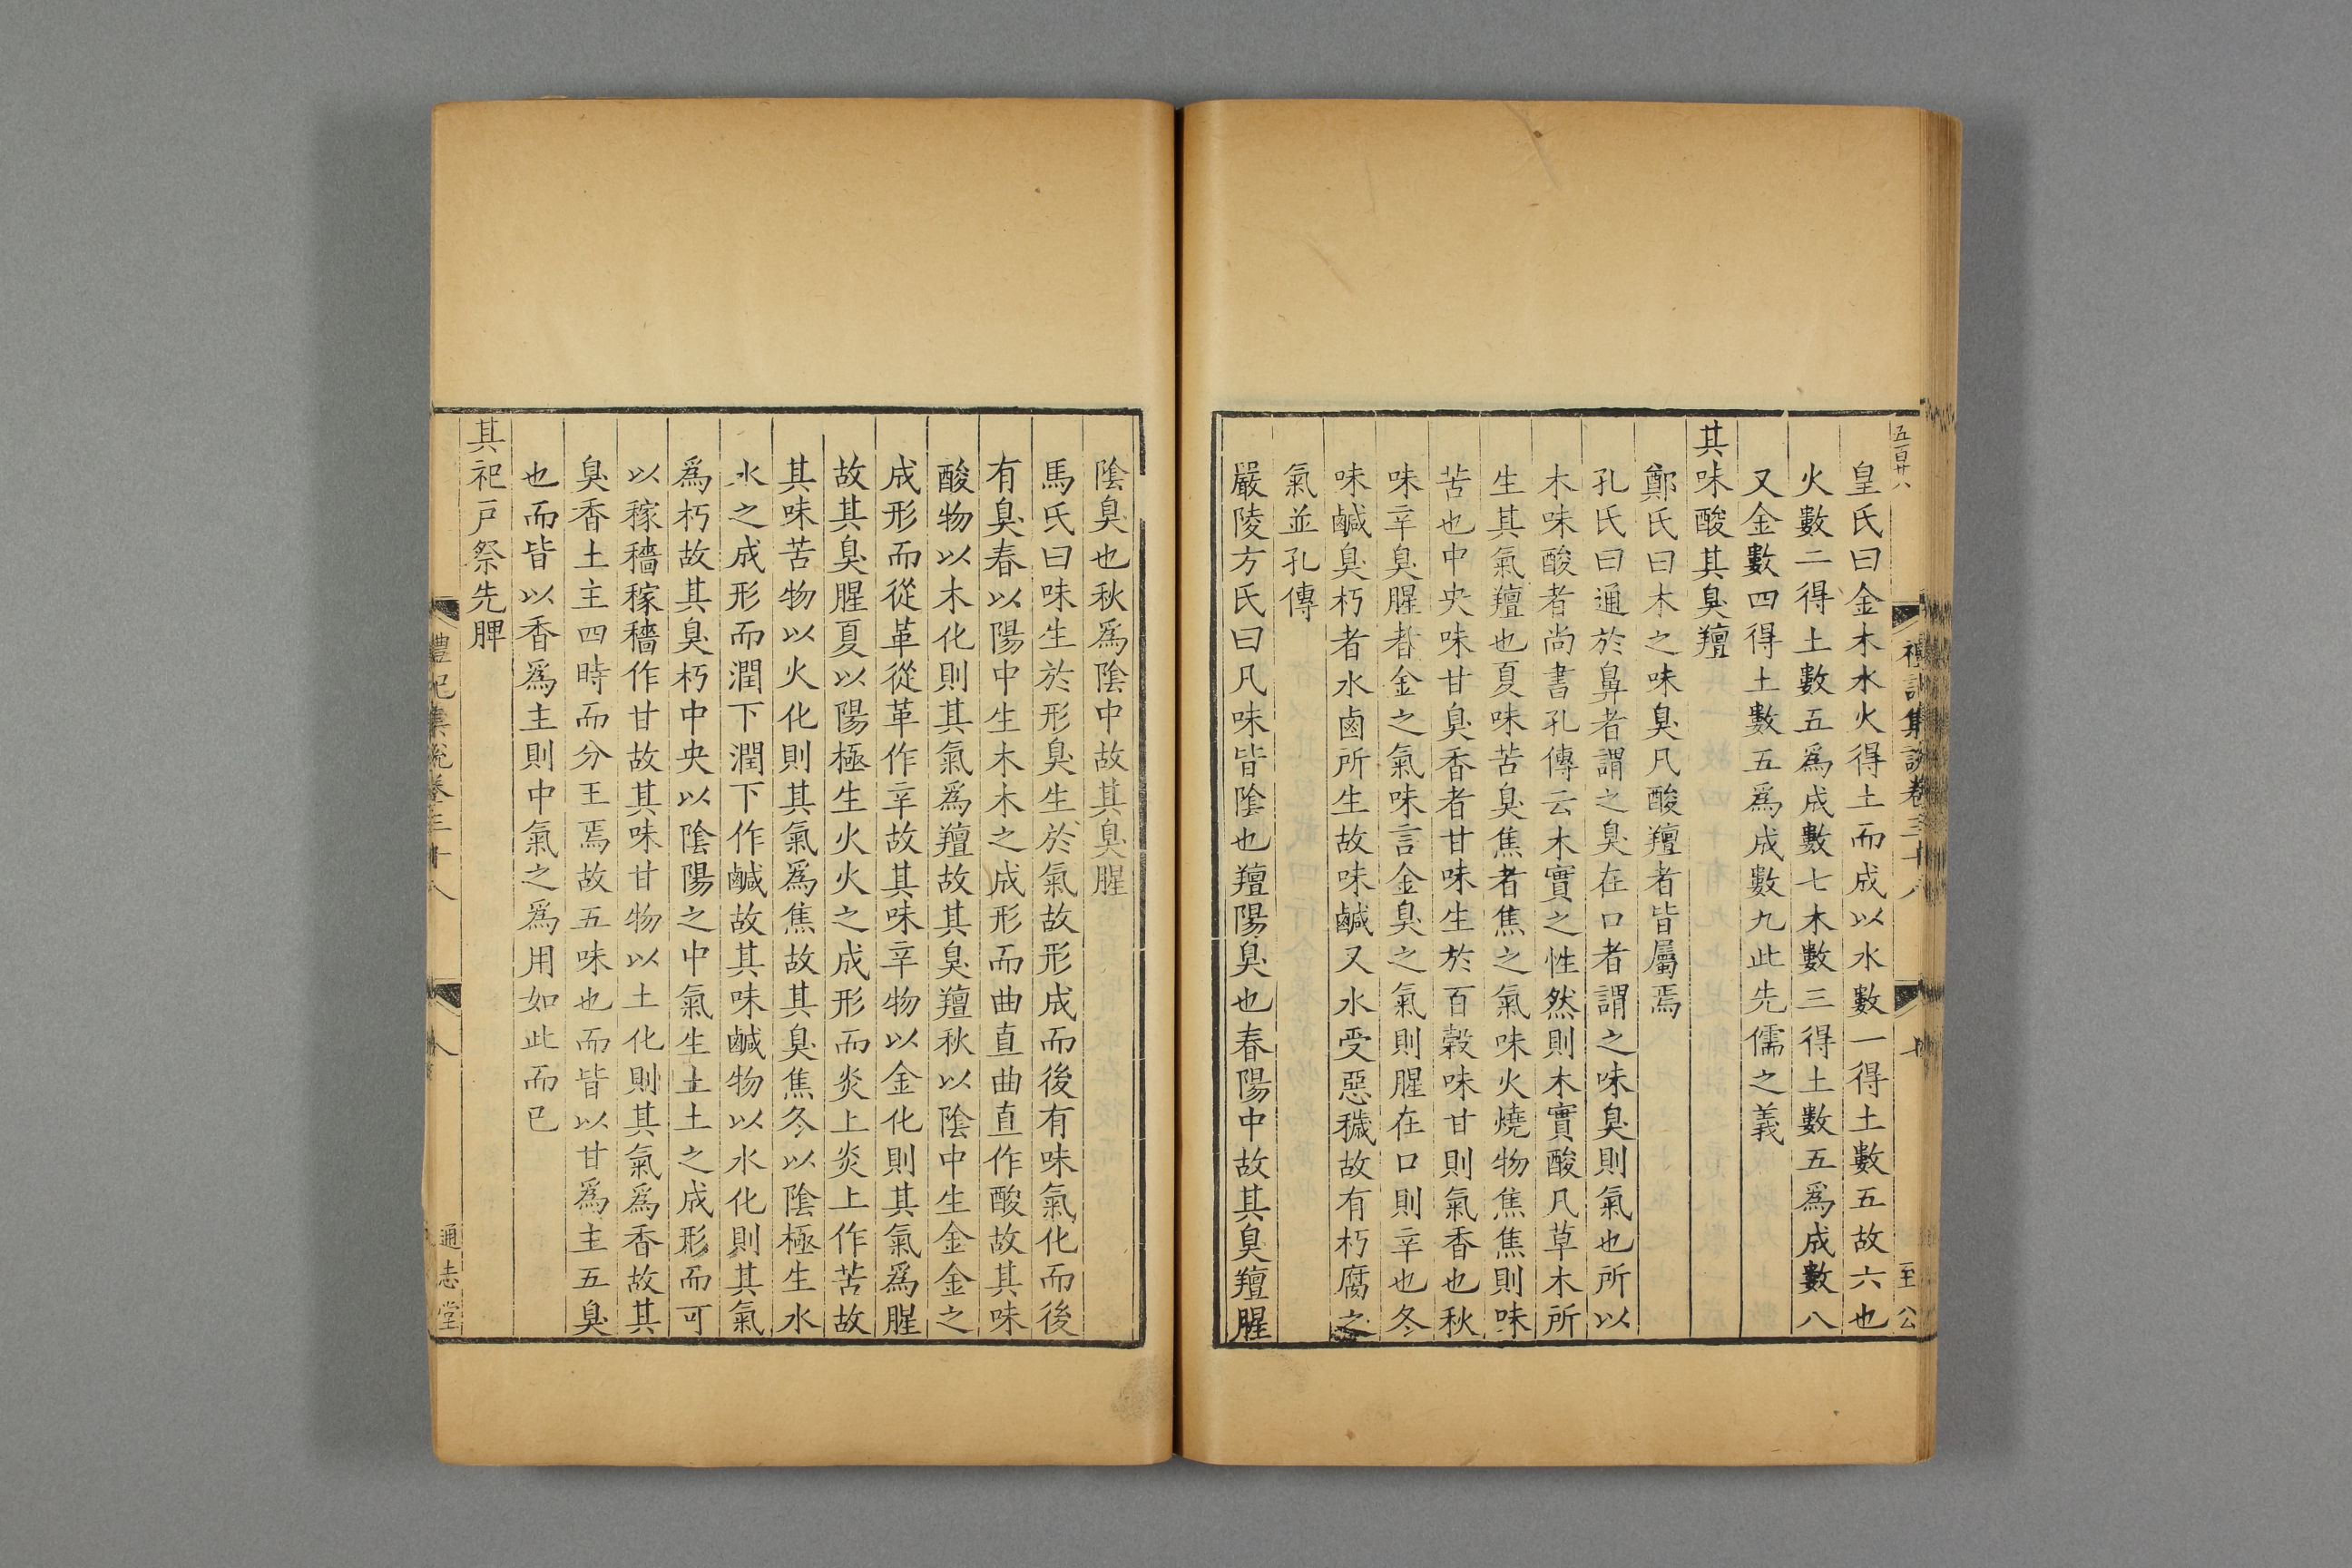 五百廿八
禮記集說卷三十八
七
至公
皇氏曰金木水火得土而成以水數一得土數五故六也
火數二得土數五爲成數七木數三得土數五爲成數八
又金數四得土數五爲成數九此先儒之義
其味酸其臭羶
鄭氏曰木之味臭凡酸羶者皆屬焉
孔氏曰通於鼻者謂之臭在口者謂之味臭則氣也所以
木味酸者尚書孔傳云木實之性然則木實酸凡草木所
生其氣羶也夏味苦臭焦者焦之氣味火燒物焦焦則味
苦也中央味甘臭香者甘味生於百穀味甘則氣香也秋
味辛臭腥者金之氣味言金臭之氣則腥在口則辛也冬
味鹹臭朽者水鹵所生故味鹹又水受惡穢故有朽腐之
氣並孔傳
嚴陵方氏曰凡味皆隂也羶陽臭也春陽中故其臭羶腥
隂臭也秋爲隂中故其臭腥
馬氏曰味生於形臭生於氣故形成而後有味氣化而後
有臭春以陽中生木木之成形而曲直曲直作酸故其味
酸物以木化則其氣爲羶故其臭羶秋以隂中生金金之
成形而從革從革作辛故其味辛物以金化則其氣爲腥
故其臭腥夏以陽極生火火之成形而炎上炎上作苦故
其味苦物以火化則其氣爲焦故其臭焦冬以隂極生水
水之成形而潤下潤下作鹹故其味鹹物以水化則其氣
爲朽故其臭朽中央以隂陽之中氣生土土之成形而可
以稼穡稼穡作甘故其味甘物以土化則其氣爲香故其
臭香土主四時而分王焉故五味也而皆以甘爲主五臭
也而皆以香爲主則中氣之爲用如此而已
其祀戸祭先脾
禮記集說卷三十八
八
通志堂